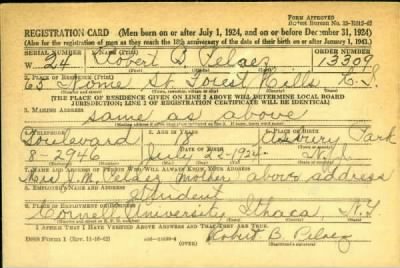 FORM APPROVED
REGISTRATION CARD (Men born on or after July 1, 1924, and on or before December 31, 1924)
(Also for the registration of men as they reach the 18th anniversary of the date of their birth on or after January 1, 1943.)
SERIAL NUMBER 1. NAME (Print) ORDER NUMBER
W 24 Robert B. Pelaez 13309
2. PLACE OF RESIDENCE (Print)
65 St Forest Hills L.I.
[THE PLACE OF RESIDENCE GIVEN ON LINE 2 ABOVE WILL DETERMINE LOCAL BOARD
JURISDICTION; LINE 2 OF REGISTRATION CERTIFICATE WILL BE IDENTICAL]
3. MAILING ADDRESS
same as above
4. TELEPHONE 5. AGE IN YEARS 6. PLACE OF BIRTH
Boulevard Asbury Park
8-2946 DATE OF BIRTH July 22-1924 N.J.
7. NAME AND ADDRESS OF PERSON WHO WILL ALWAYS KNOW YOUR ADDRESS
Pelaez Mother above address
8. EMPLOYER'S NAME AND ADDRESS
Student
9. PLACE OF EMPLOYMENT OR BUSINESS
Cornell University Ithaca N.Y.
I AFFIRM THAT I HAVE VERIFIED ABOVE ANSWERS AND THAT THEY ARE TRUE.
Robert B. Pelaez